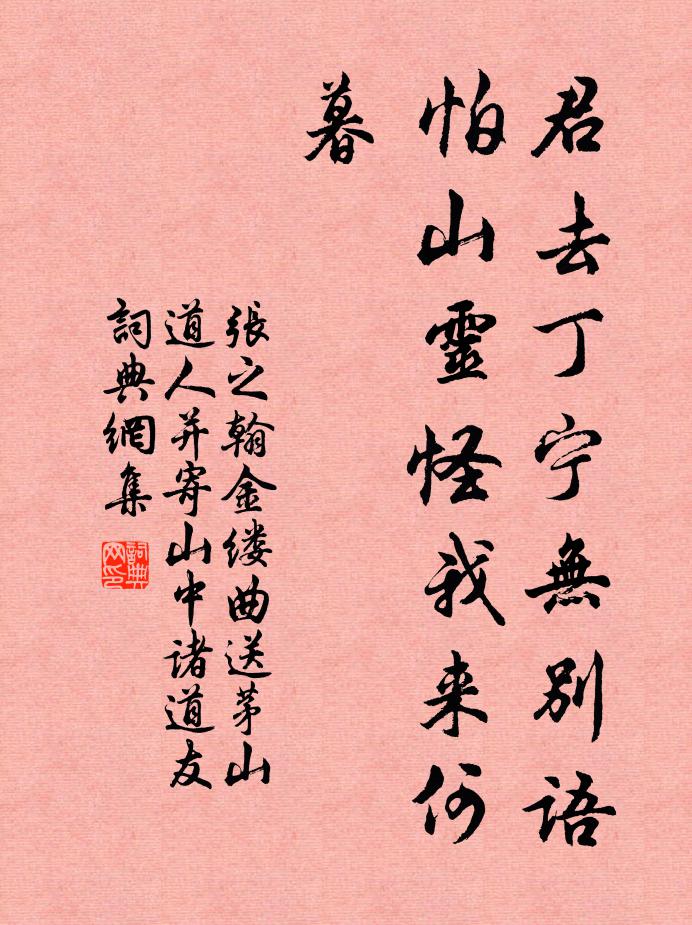 君去丁宁無別語
怕山靈怪我来何
暮
張之翰金缕曲送茅山
道人并寄山中诸道友
詞典網集
詞典網印